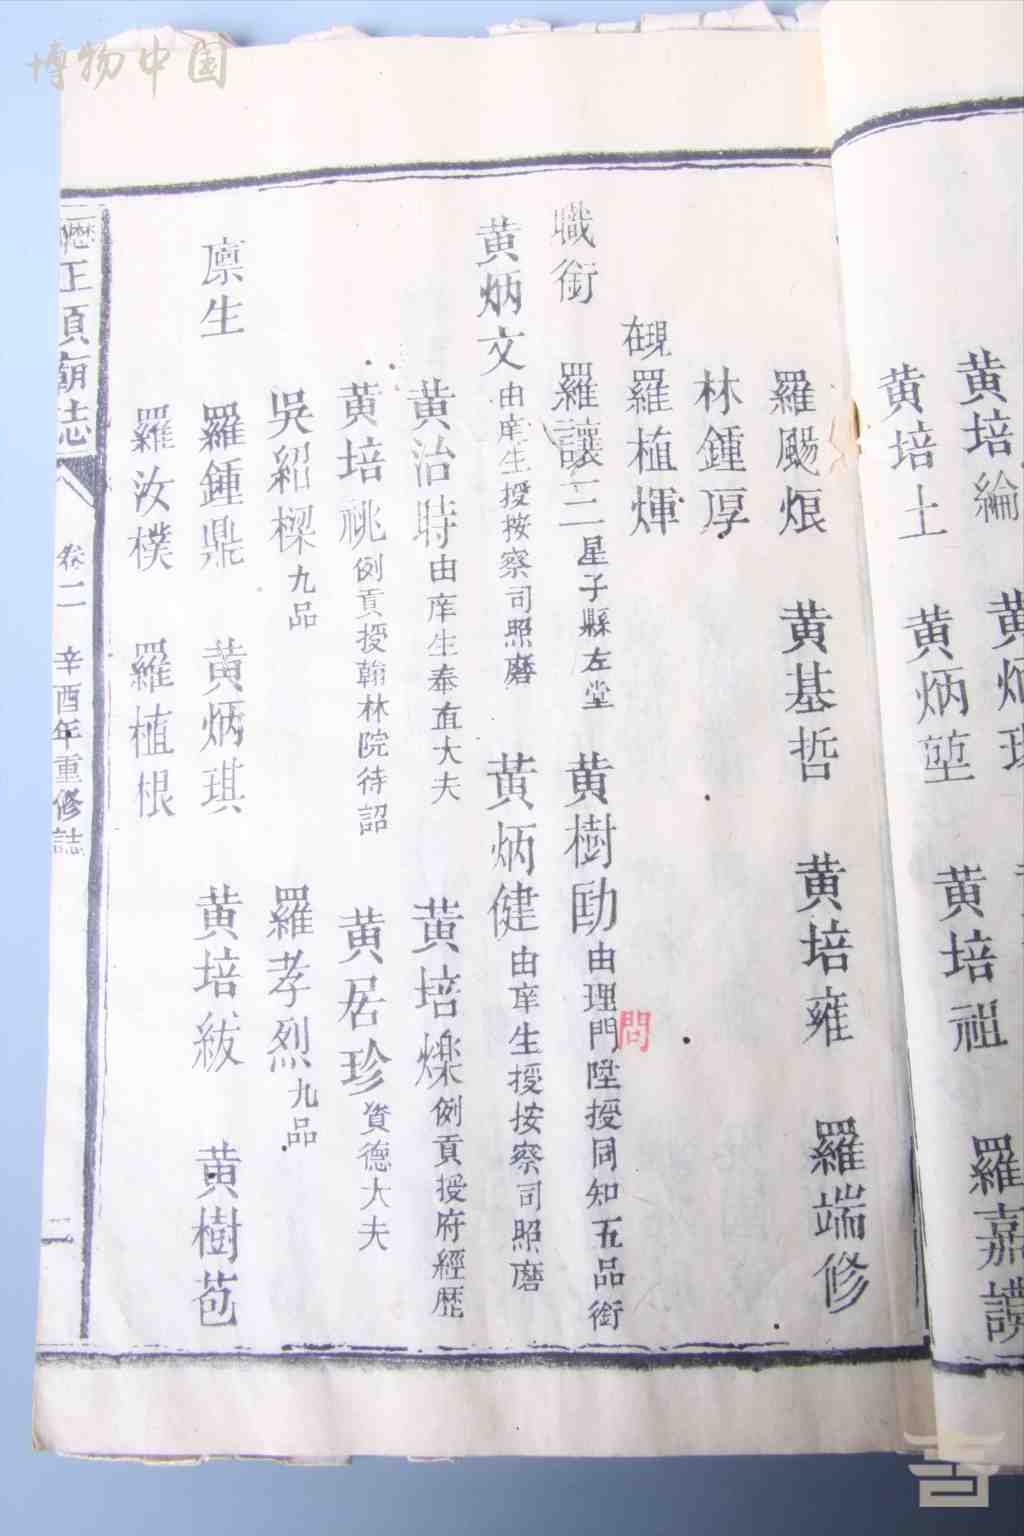 博物中国
黄培綸
黄培土 黄炳堃 黄培祖 羅嘉讚
羅颺烺 黄基哲 黄培雍 羅端修
林鍾厚
現在羅植煇
職銜 羅讓三星子縣左堂 黄樹勛由理門陞授同知五品銜
問
黄炳文由庠生授按察司照磨 黄炳健由庠生授按察司照磨
黄治時由庠生奉直大夫 黄培燦例貢授府經歷
黄培祧例貢授翰林院待詔 黄居珍資德大夫
吳紹樑九品 羅孝烈九品
廩生 羅鍾鼎 黄炳琪 黄培紱 黄樹苞
羅汝樸 羅植根
正頂廟誌 卷二 辛酉年重修誌 二